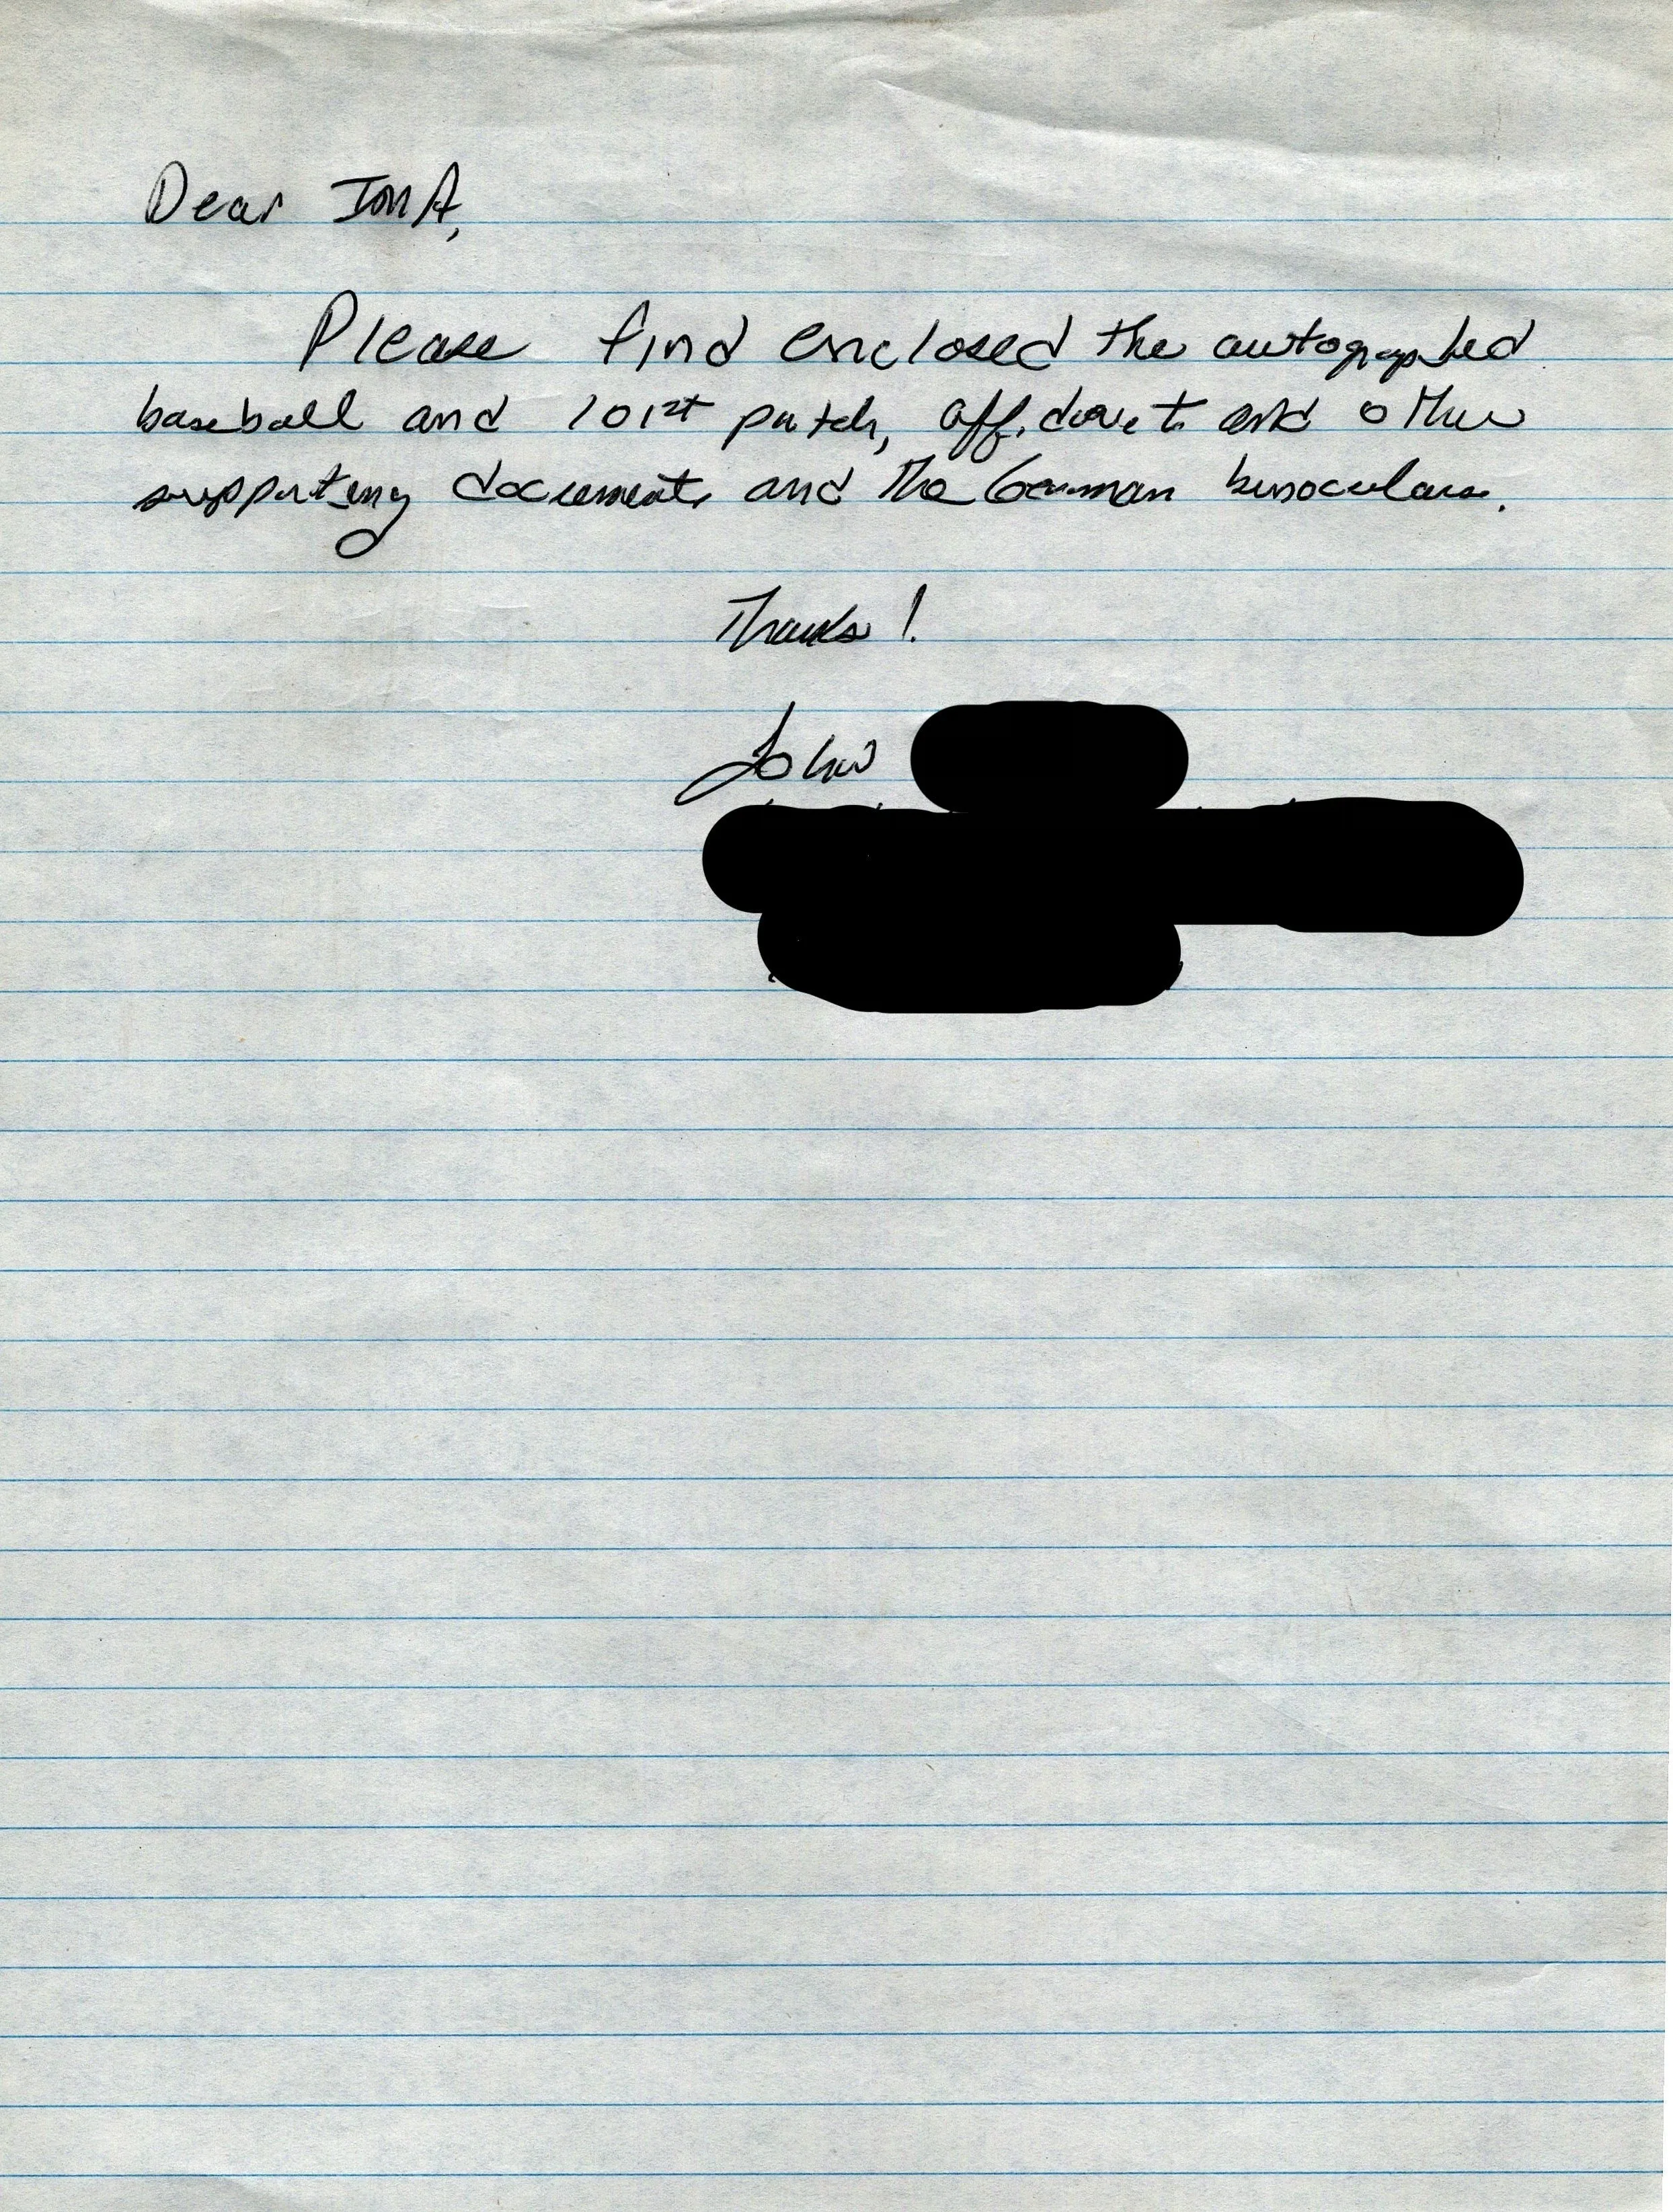 Dear IMA,
Please find enclosed the autographed
baseball and 101st patch, affidavit and other
supporting documents and the German binoculars.
Thanks!
John